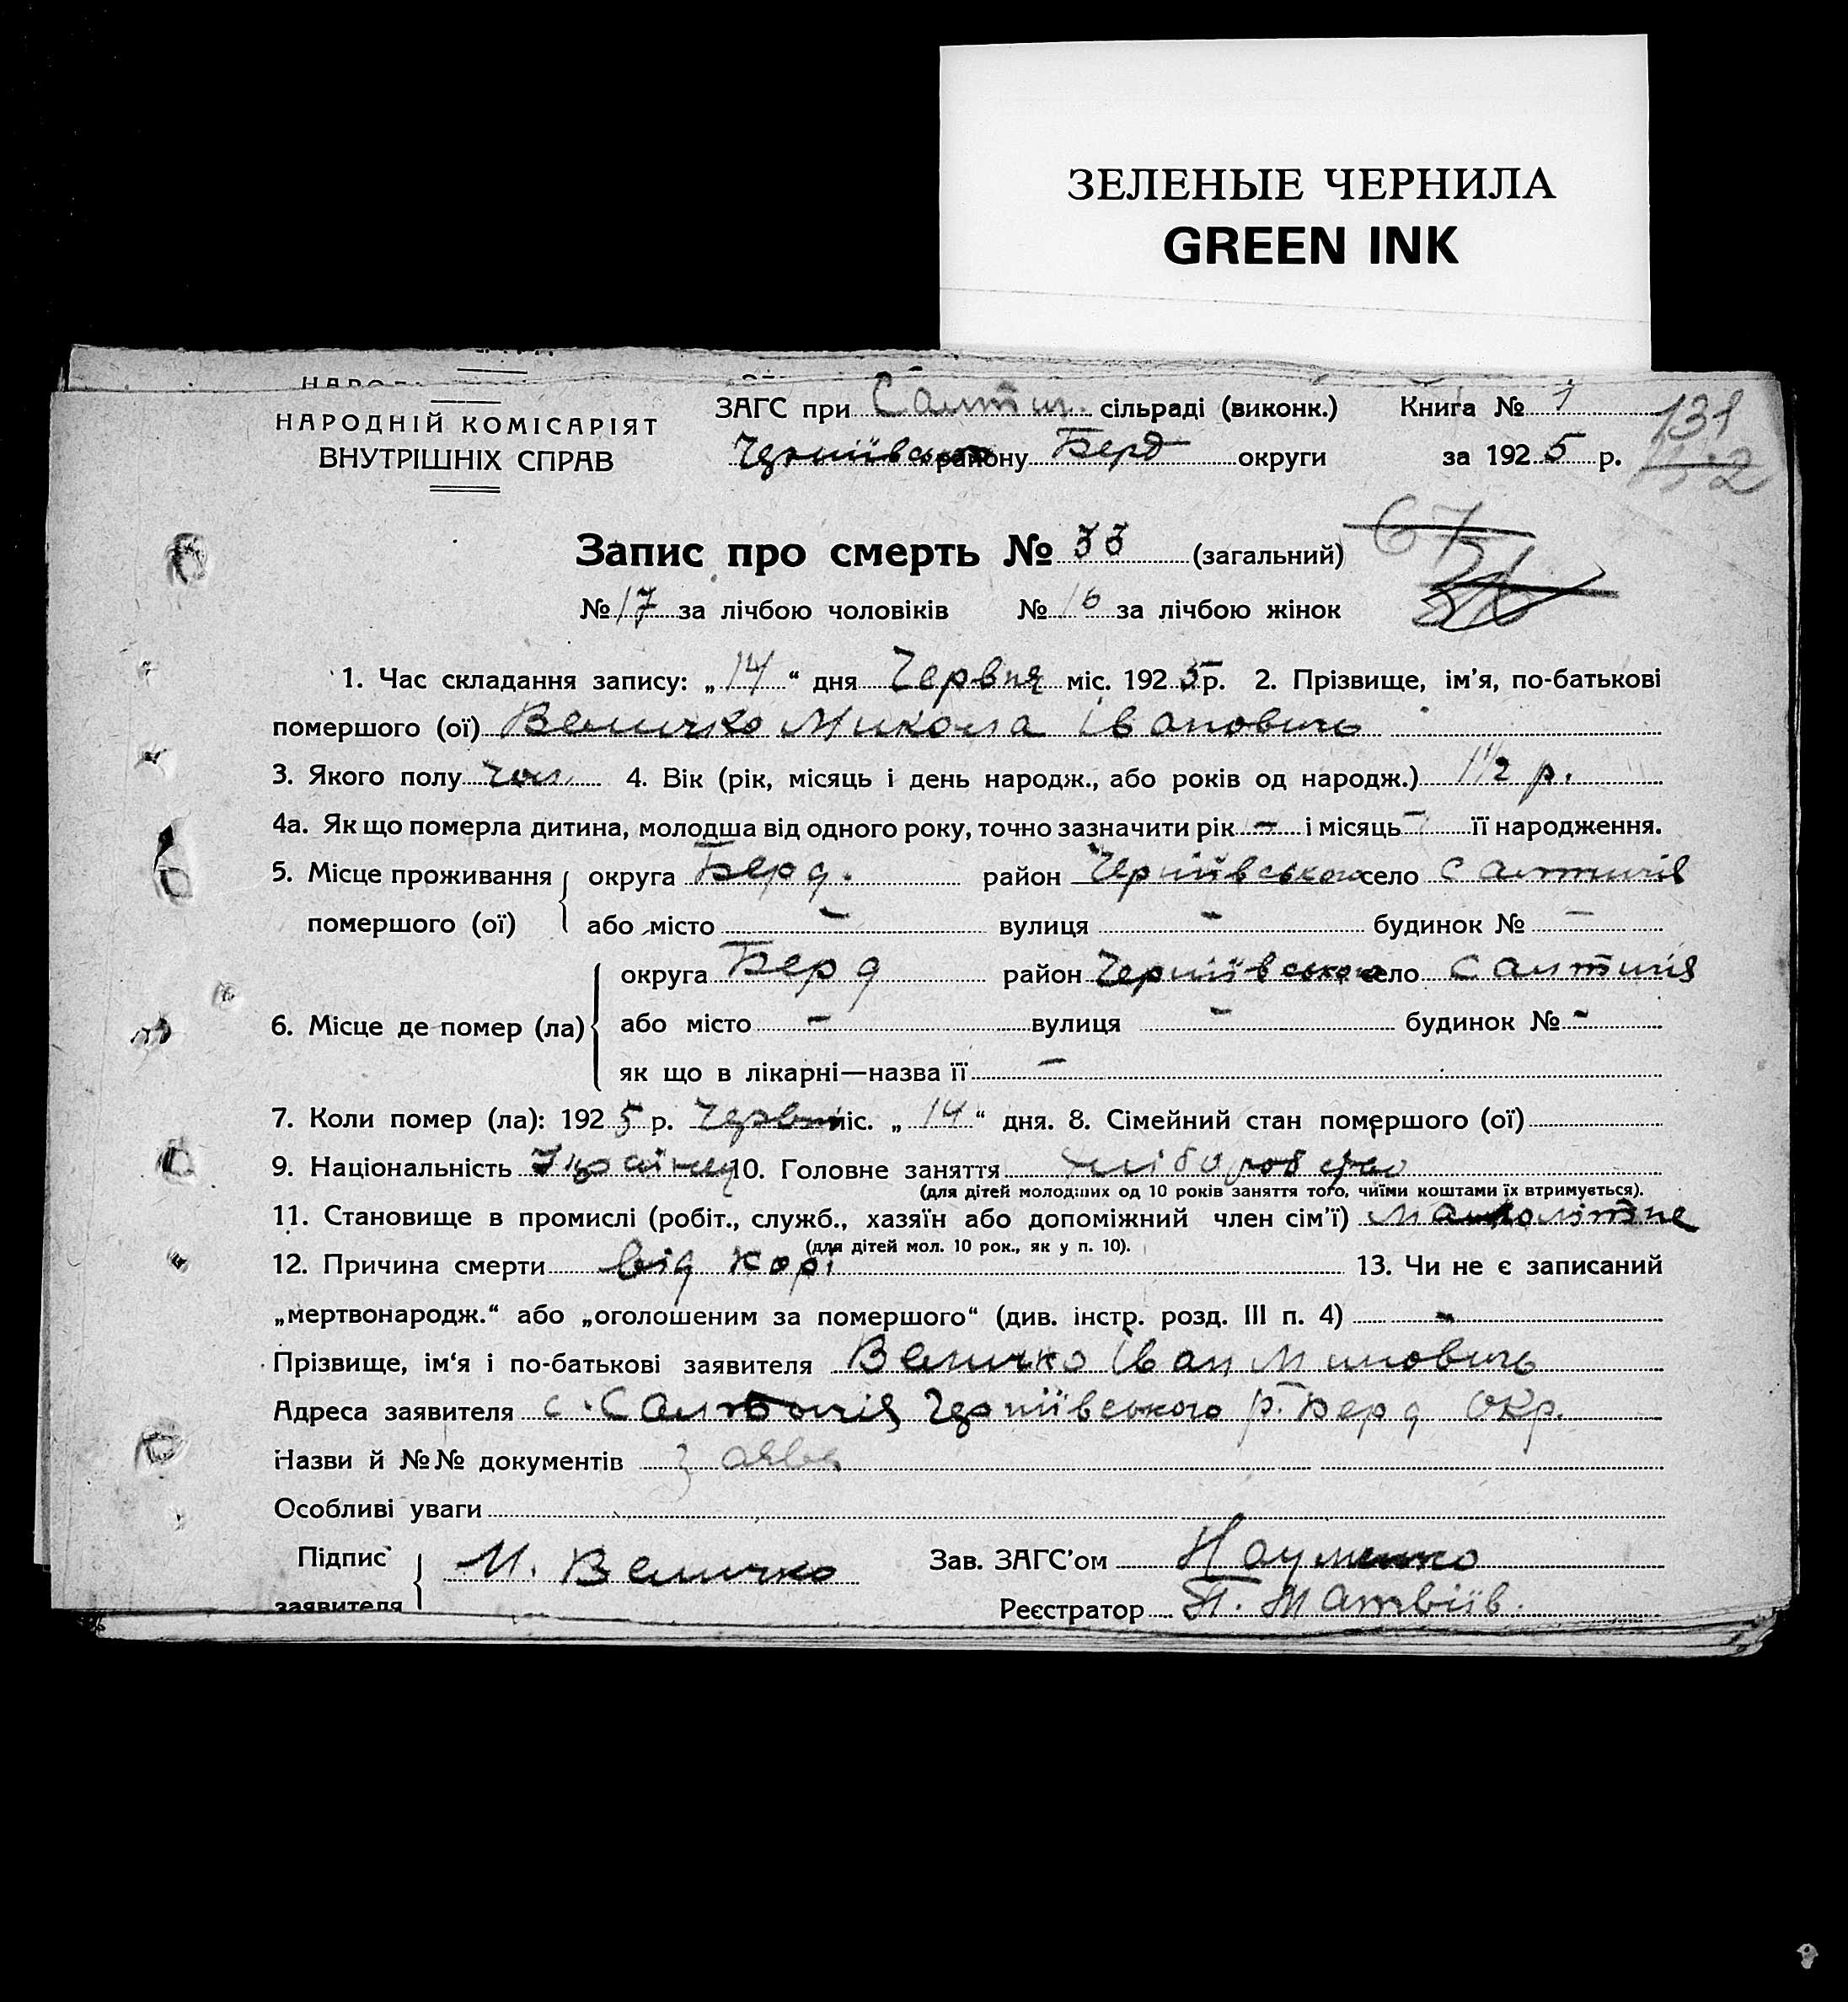 ЗЕЛЕНЫЕ ЧЕРНИЛА
GREEN INK
НАРОДНІЙ КОМІСАРІЯТ
ВНУТРІШНІХ СПРАВ
ЗАГС при Салтич. сільраді (виконк.) Книга № 1
Черніівського району Берд округи за 1925 р.
131
Запис про смерть № 33 (загальний)
67
№ 17 за лічбою чоловіків № 16 за лічбою жінок
1. Час складання запису: „14“ дня Червня міс. 1925 р. 2. Прізвище, ім’я, по-батькові
помершого (ої) Величко Микола Івановичь
3. Якого полу чол. 4. Вік (рік, місяць і день народж., або років од народж.) 1 1/2 р.
4а. Як що померла дитина, молодша від одного року, точно зазначити рік – і місяць – її народження.
5. Місце проживання помершого (ої) округа Берд. район Черніівського село Салтичія
або місто – вулиця – будинок № –
6. Місце де помер (ла) округа Берд район Черніівського село Салтичія
або місто – вулиця – будинок № -
як що в лікарні—назва її –
7. Коли помер (ла): 1925 р. Червня міс. „14“ дня. 8. Сімейний стан помершого (ої)
9. Національність Українец 10. Головне заняття хліборобство
(для дітей молодших од 10 років заняття того, чиїми коштами їх втримується).
11. Становище в промислі (робіт., служб., хазяїн або допоміжний член сім’ї) малолітне
(для дітей мол. 10 рок., як у п. 10).
12. Причина смерти від корі 13. Чи не є записаний
„мертвонародж.“ або „оголошеним за помершого“ (див. інстр. розд. III п. 4) -
Прізвище, ім‘я і по-батькові заявителя Величко Іван Миновичь
Адреса заявителя с. Салтичія Черніівського р. Берд окр.
Назви й №№ документів заява
Особливі уваги
Підпис заявителя И. Величко Зав. ЗАГС’ом Науменко
Реєстратор П. Матвіів.